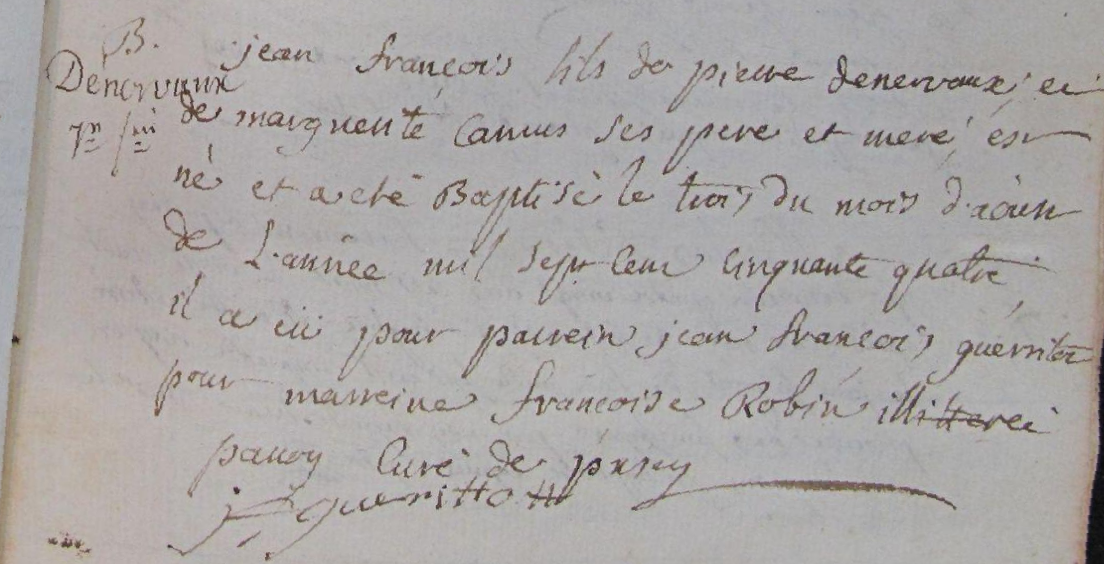 B.
Dénervaux
jean françois fils de pierre denervaux et
de marguerite Camus ses pere et mere, est
né et a eté Baptisé le trois du mois d'aoust
de L'année mil sept Cent Cinquante quatre
il a eü pour parrein jean françois
pour marreine francoise Robin illitteréé
Curé de pusey
jf gueritott